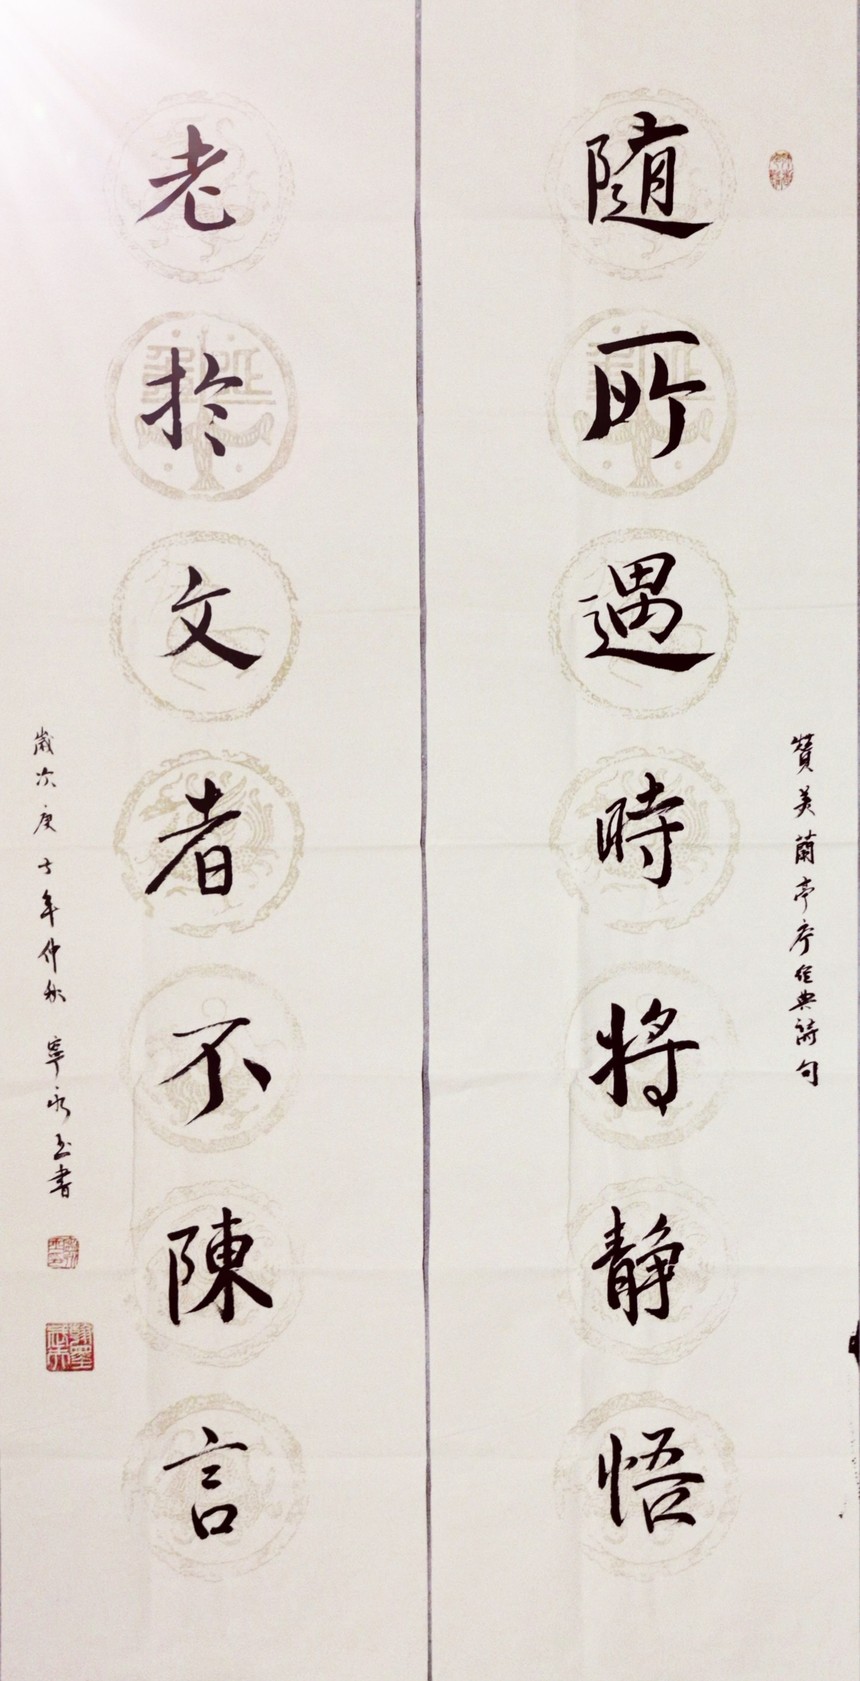 贊美蘭亭序經典詩句
隨所遇時將靜悟
老於文者不陳言
歲次庚子年仲秋 寧永玉書